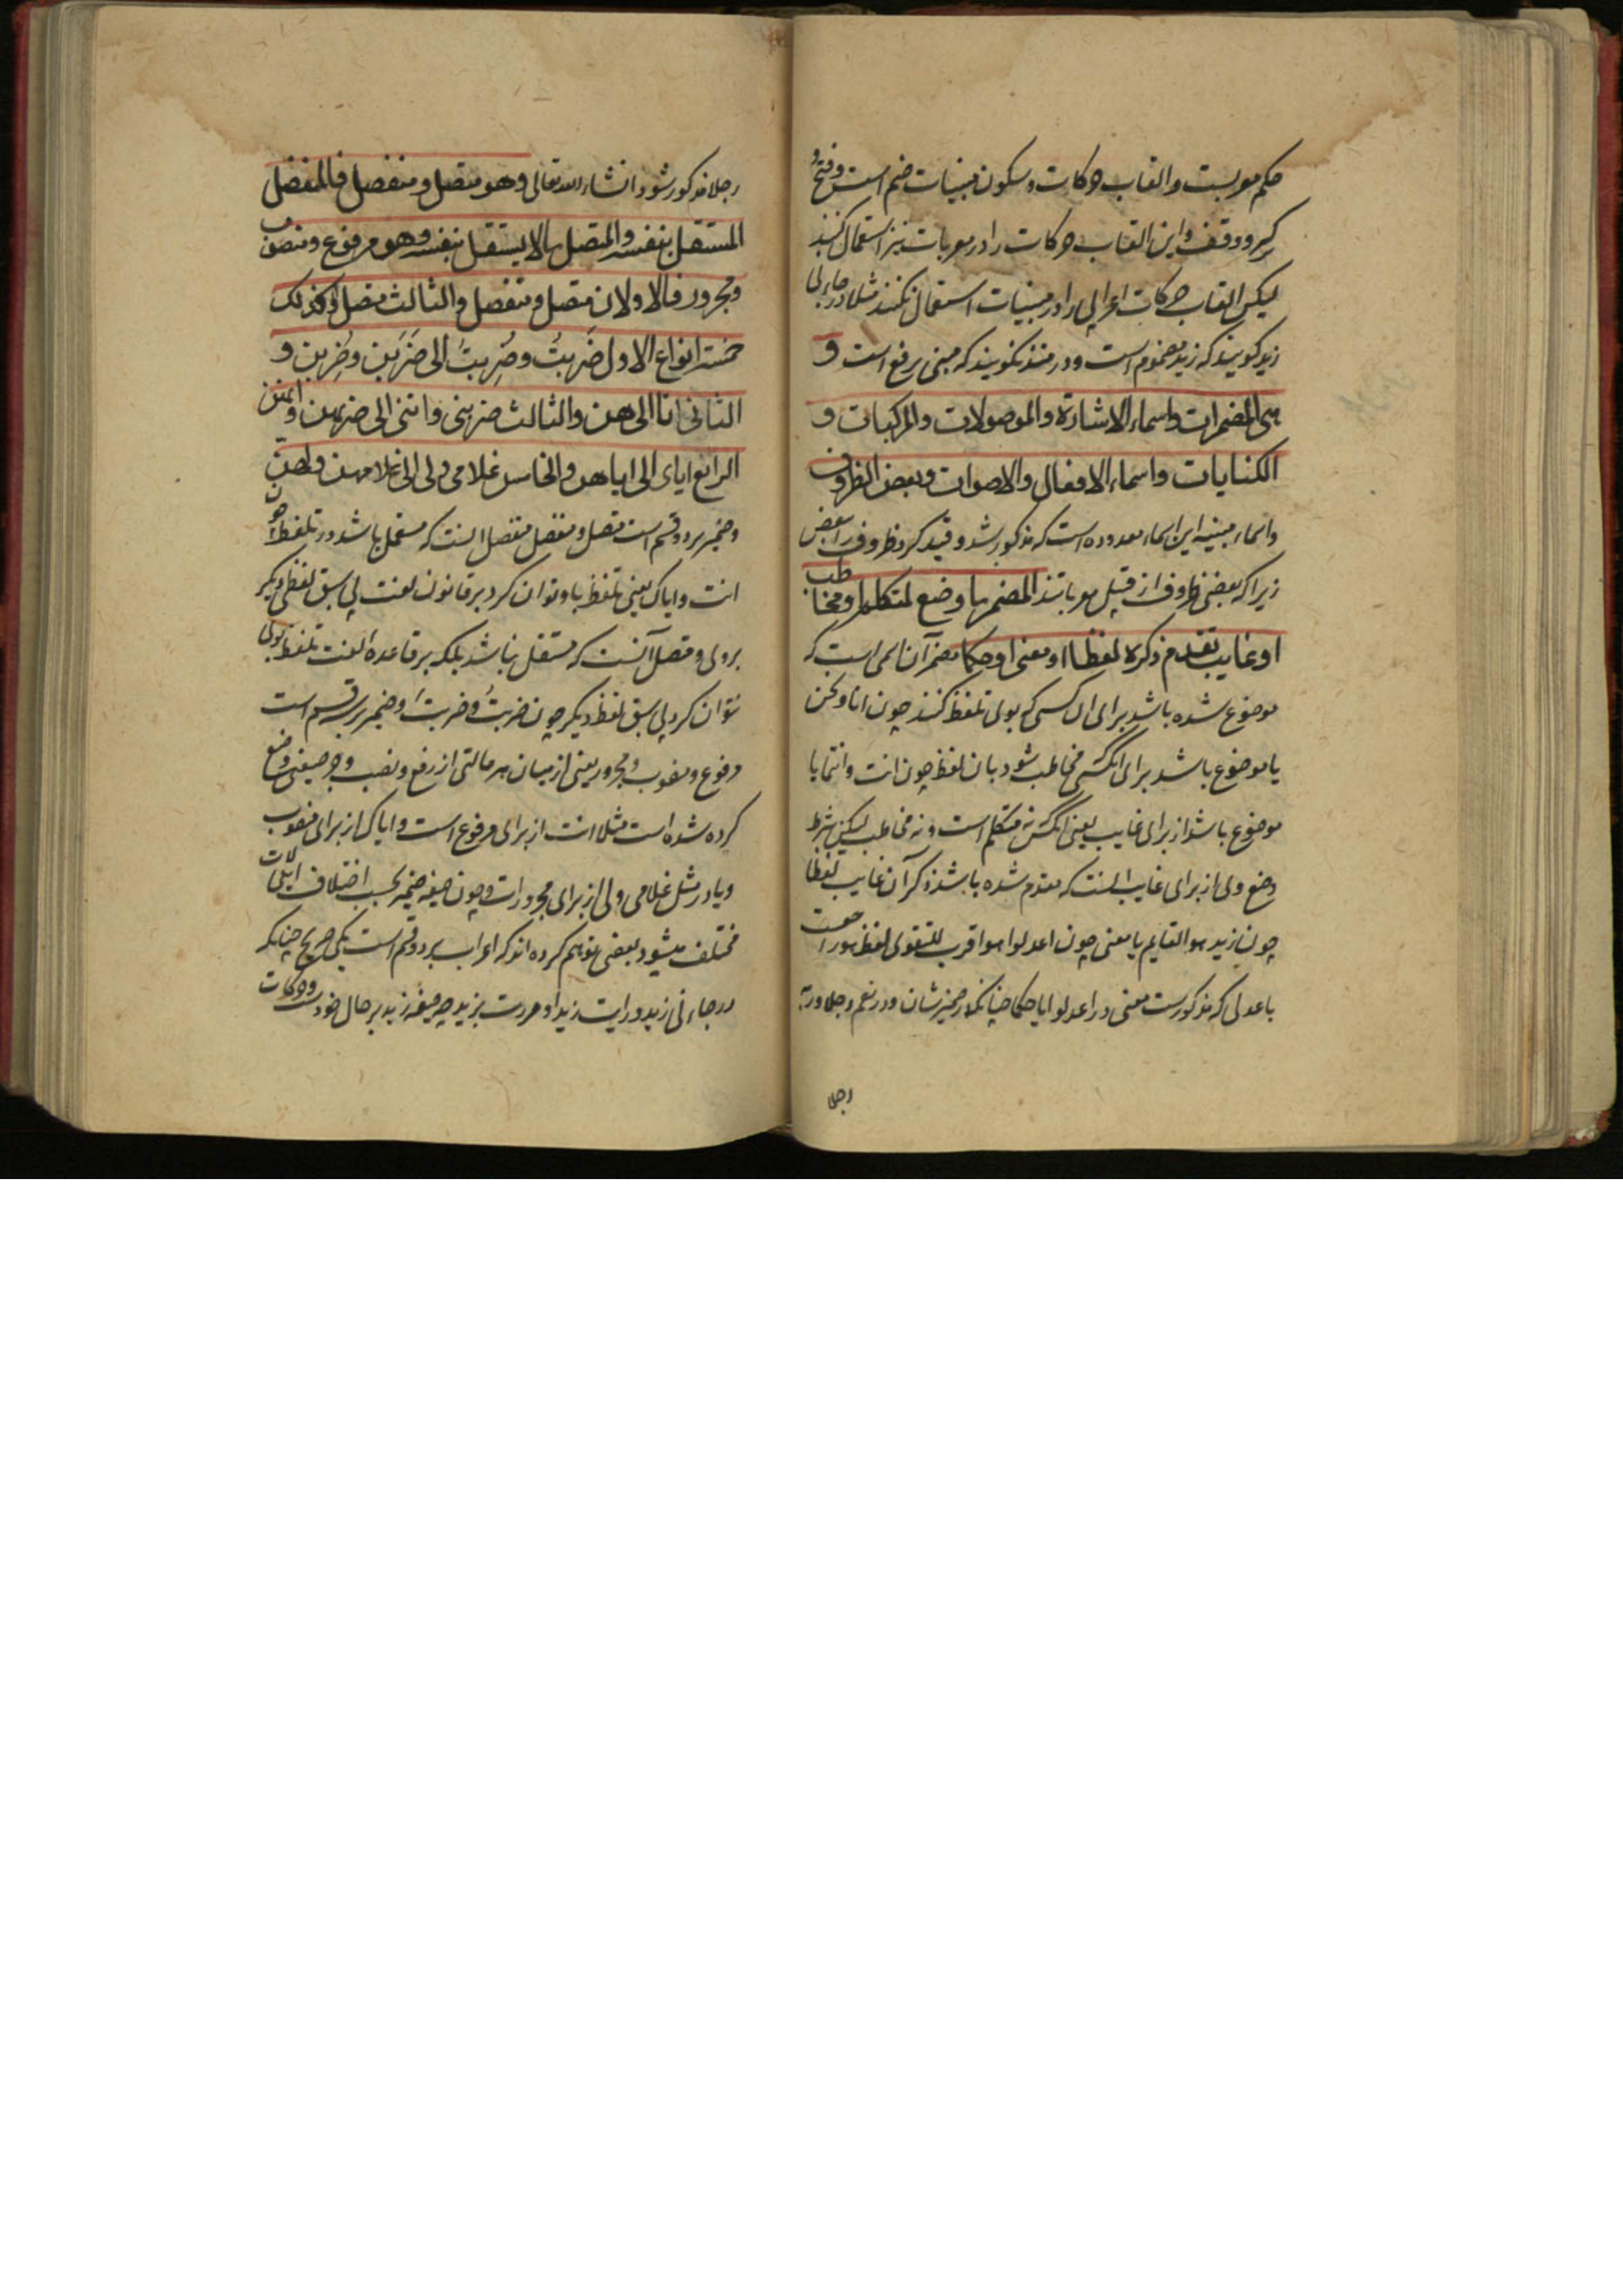 حکم معربست والقاب حرکات و سکون مبنیات ضم است و فتح و
کسر و وقف و این القاب حرکات را در معربات نیز استعمال کنند
لیکن القاب حرکات اعرابی را در مبنیات استعمال نکنند مثلا در جاءنی
زید کویند که زید مضموم است و در منذ نکویند که مبنی بر رفع است و
هی المضمرات واسماء الاشارة والموصولات والمرکبات و
الکنایات واسماء الافعال والاصوات وبعض الظروف
واسماء مبنیه این اسماء معدوده است که مذکور شد و قید کرد ظروف را ببعض
زیرا که بعضی ظروف از قبیل معرباتند المضمر ما وضع لمتکلم او مخاطب
او غایب تقدم ذکره لفظا او معنی او حکما مضمر آن اسمی است که
موضوع شده باشد برای ان کسی که بوی تلفظ کنند چون انا و نحن
یا موضوع باشد برای انکسی مخاطب شود بان لفظ چون انت وانتما یا
موضوع باشد از برای غایب یعنی انکس نه متکلم است و نه مخاطب لیکن شرط
وضع وی از برای غایب انست که مقدم شده باشد ذکر آن غایب لفظا
چون زید هو القایم یا معنی چون اعدلوا هو اقرب للتقوی لفظ هو راجعست
باعدلی که مذکورست معنی در اعدلوا یا حکما چنانکه در ضمیر شان و در نعم رجلا و ربه
رجلا
رجلا مذکور شود انشاء الله تعالی وهو متصل ومنفصل فالمنفصل
المستقل بنفسه والمتصل ما لا یستقل بنفسه وهو مرفوع ومنصوب
ومجرور فالاولان متصل ومنفصل والثالث متصل وکذلک
خمسة انواع الاول ضَربتُ وضُرِبتُ الی ضَرَبن وضُرِبن و
الثانی انا الی هن والثالث ضربنی واننی الی ضربهن وانهن
الرابع ایای الی ایاهن والخامس غلامی ولی الی غلامهن ولهن
وضمیر بر دو قسم است متصل و منفصل منفصل انست که مستقل باشد در تلفظ چون
انت وایاک یعنی تلفظ باو توان کرد بر قانون لغت بی سبق لفظی دیکر
بر وی و متصل آنست که مستقل نباشد بلکه بر قاعده لغت تلفظ بوی
نتوان کرد بی سبق لفظ دیکر چون ضربتُ و ضربتَ و ضمیر بر سه قسم است
مرفوع و منصوب و مجرور یعنی از میان هر حالتی از رفع و نصب و جر صیغتی وضع
کرده شده است مثلا انت از برای مرفوع است و ایاک از برای منصوب
و یا در مثل غلامی و لی از برای مجرورات و چون صیغه ضمیر بحسب اختلاف
مختلف میشود بعضی توهم کرده اند که اعراب بر دو قسم است یکی صریح چنانکه
در جاءنی زید و رایت زیدا و مررت بزید چه صیغه زید بر حال خودست و حرکات